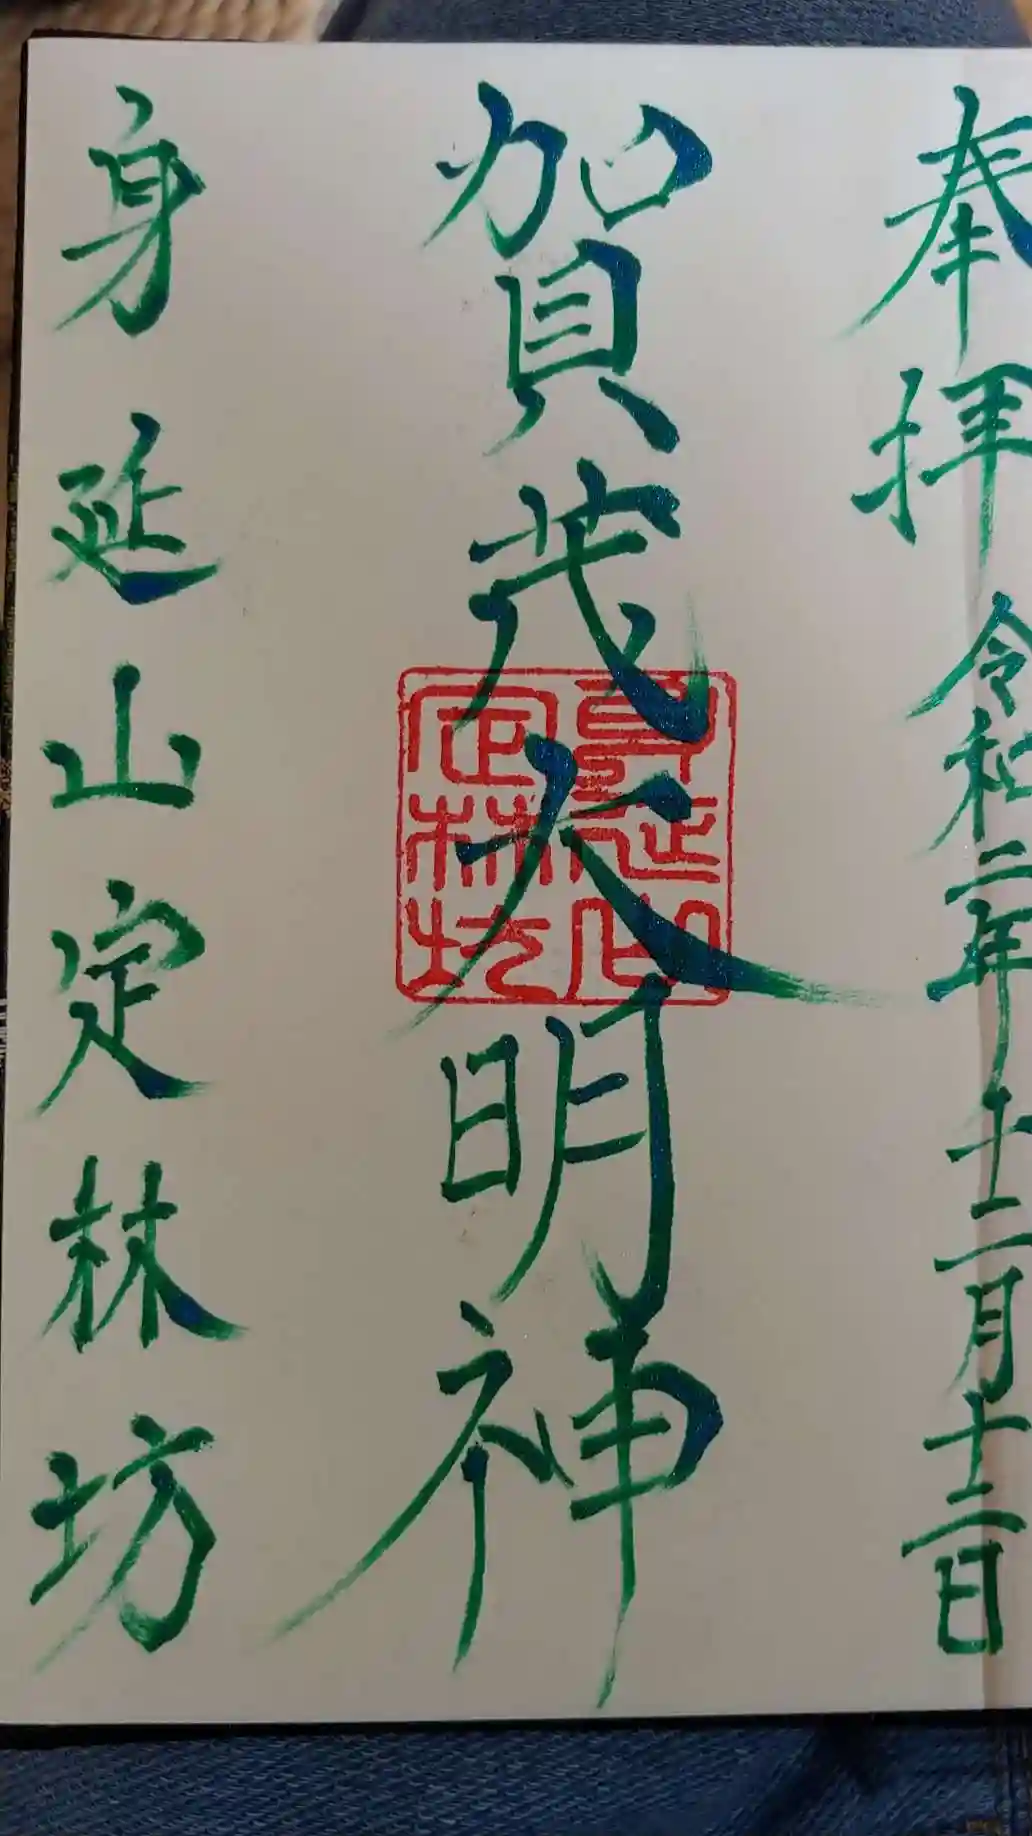 奉拝 令和二年十二月十二日
賀茂大明神
身延山定林坊
身延山
定林坊